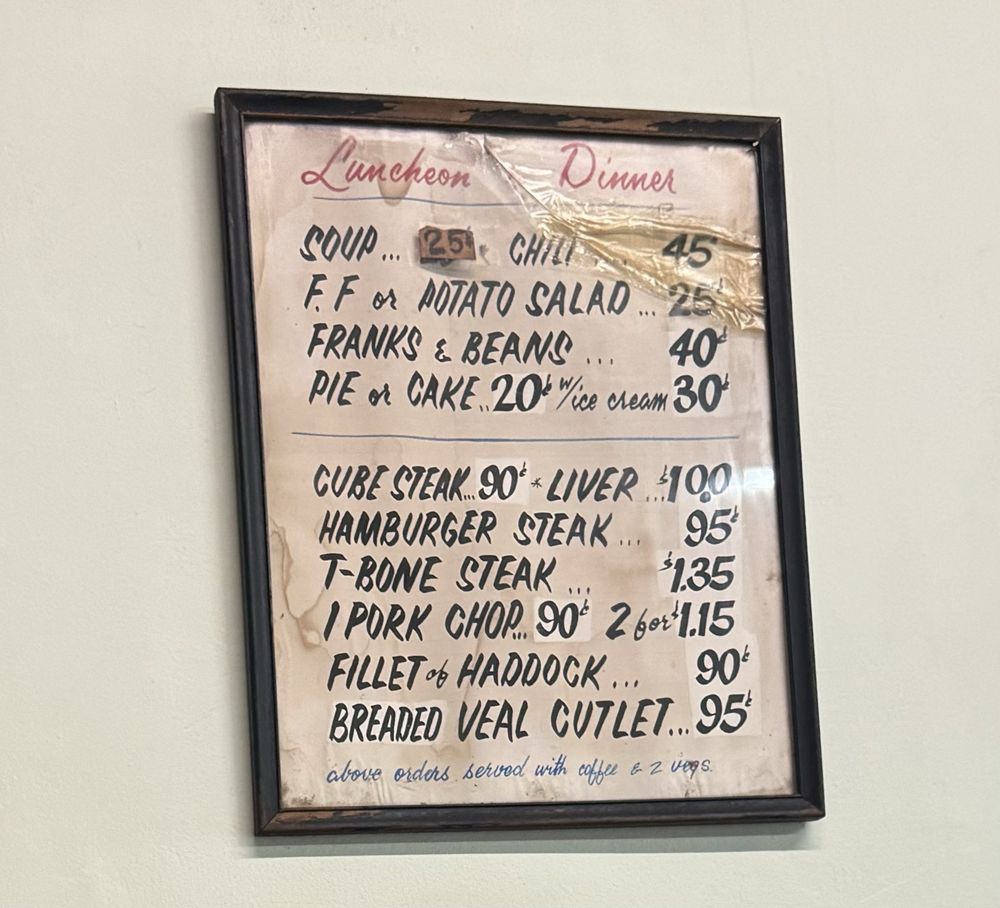 Luncheon Dinner
SOUP... 25¢ CHILI ... 45
F.F or POTATO SALAD ... 25¢
FRANKS & BEANS ... 40¢
PIE or CAKE.. 20¢ w/ice cream 30¢
CUBE STEAK... 90¢ * LIVER ... $1.00
HAMBURGER STEAK ... 95¢
T-BONE STEAK ... $1.35
1 PORK CHOP... 90¢ 2 for $1.15
FILLET of HADDOCK ... 90¢
BREADED VEAL CUTLET... 95¢
above orders served with coffee & 2 vegs.